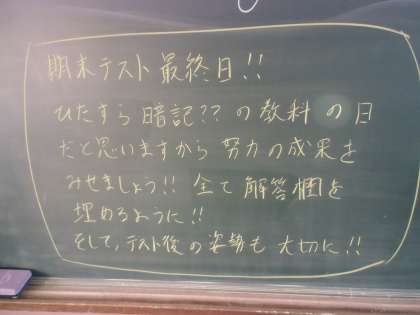 期末テスト 最終日!!
ひたすら 暗記?? の 教科 の 日
だと思いますから 努力の成果を
みせましょう!! 全て 解答欄を
埋めるように!!
そして、テスト後の 姿勢も 大切に!!